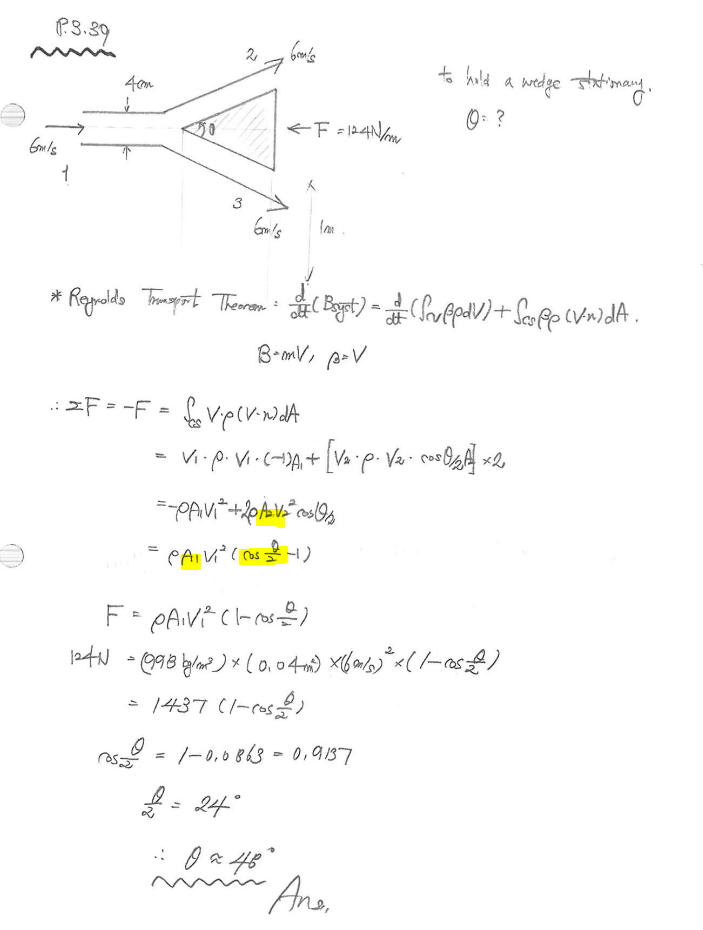 P.3.39
2
6m/s
4cm
to hold a wedge stationary.
θ = ?
θ
← F = 124N/m
6m/s
1
3
6m/s
1m
* Reynolds Transport Theorem : d/dt (Bsyst) = d/dt (∫cv βρdV) + ∫cs βρ (V·n) dA.
B = mV, β = V
∴ ΣF = -F = ∫cs V·ρ(V·n)dA
= V₁·ρ·V₁·(-1)A₁ + [V₂·ρ·V₂·cosθ/2 A₂] ×2
= -ρA₁V₁² + 2ρA₂V₂² cosθ/2
= ρA₁V₁² (cos θ/2 -1)
F = ρA₁V₁² (1-cos θ/2)
124N = (998 kg/m³) × (0.04m²) × (6m/s)² × (1-cos θ/2)
= 1437 (1-cos θ/2)
cos θ/2 = 1-0.0863 = 0.9137
θ/2 = 24°
∴ θ ≈ 48°
Ans.